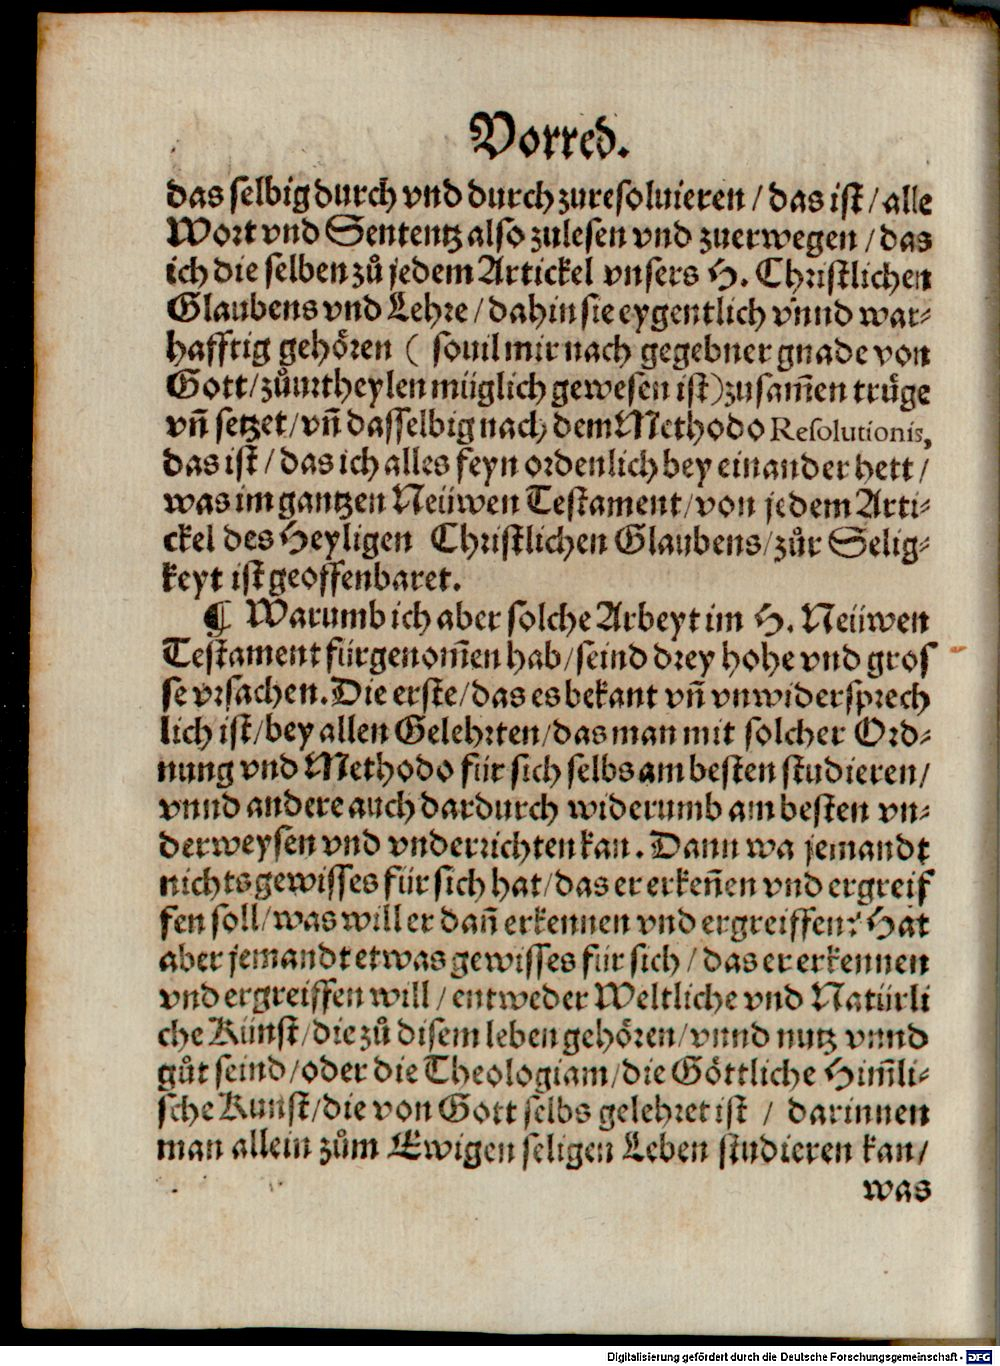 Vorred.
das selbig durch vnd durch zuresoluieren / das ist / alle
Wort vnd Sententz also zulesen vnd zuerwegen / das
ich die selben zů jedem Artickel vnsers H. Christlichen
Glaubens vnd Lehre / dahin sie eygentlich vnnd war-
hafftig gehören ( souil mir nach gegebner gnade von
Gott / zůurtheylen müglich gewesen ist) zusam̄en trüge
vn̄ setzet / vn̄ dasselbig nach dem Methodo Resolutionis,
das ist / das ich alles feyn ordenlich bey einander hett /
was im gantzen Neüwen Testament / von jedem Arti-
ckel des Heyligen Christlichen Glaubens / zůr Selig-
keyt ist geoffenbaret.
¶ Warumb ich aber solche Arbeyt im H. Neüwen
Testament fürgenom̄en hab / seind drey hohe vnd gros
se vrsachen. Die erste / das es bekant vn̄ vnwidersprech
lich ist / bey allen Gelehrten / das man mit solcher Ord-
nung vnd Methodo für sich selbs am besten studieren /
vnnd andere auch dardurch widerumb am besten vn-
derweysen vnd vnderrichten kan. Dann wa jemandt
nichts gewisses für sich hat / das er erken̄en vnd ergreif
fen soll / was will er dan̄ erkennen vnd ergreiffen? Hat
aber jemandt etwas gewisses für sich / das er erkennen
vnd ergreiffen will / entweder Weltliche vnd Natürli
che Künst / die zů disem leben gehören / vnnd nutz vnnd
gůt seind / oder die Theologiam / die Göttliche Him̄li-
sche Kunst / die von Gott selbs gelehret ist / darinnen
man allein zům Ewigen seligen Leben studieren kan /
was
Digitalisierung gefördert durch die Deutsche Forschungsgemeinschaft - DFG